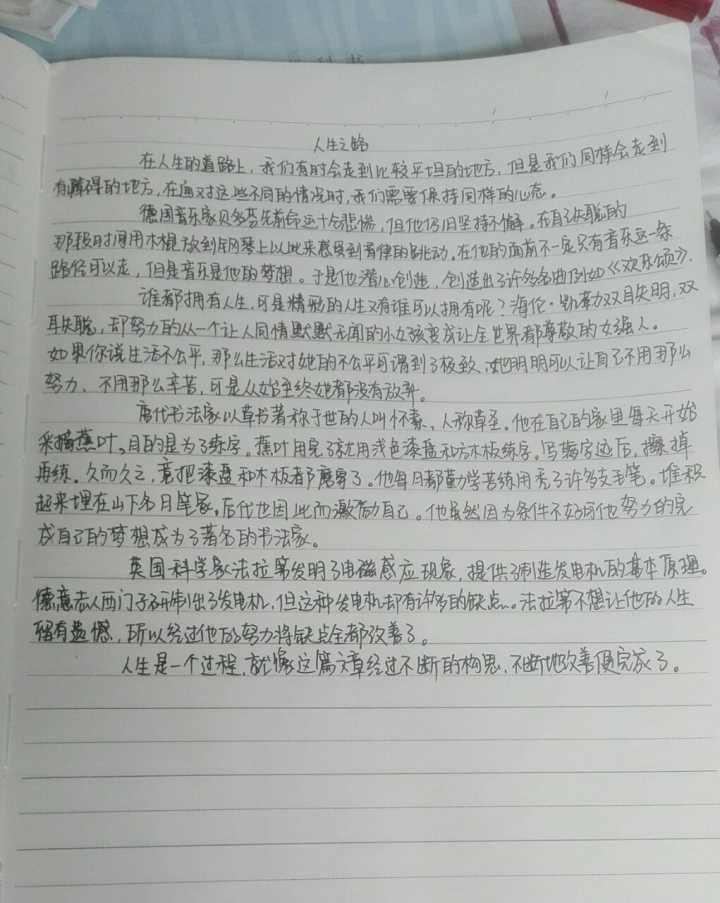 人生之路
在人生的道路上，我们有时会走到比较平坦的地方，但是我们同样会走到
有障碍的地方，在面对这些不同的情况时，我们需要保持同样的心态。
德国音乐家贝多芬先前命运十分悲惨，但他仍旧坚持不懈。在自己失聪的
那段时间用木棍放到钢琴上以此来感受到音律的跳动。在他的面前不一定只有音乐这一条
路径可以走，但是音乐是他的梦想。于是他潜心创造，创造出了许多名曲例如《欢乐颂》.
谁都拥有人生，可是精彩的人生又有谁可以拥有呢？海伦·凯勒双目失明，双
耳失聪，却努力的从一个让人同情默默无闻的小女孩变成让全世界都尊敬的女强人。
如果你说生活不公平，那么生活对她的不公平可谓到了极致，她明明可以让自己不用那么
努力、不用那么辛苦，可是从始至终她都没有放弃。
唐代书法家以草书著称于世的人叫怀素，人称草圣。他在自己的家里每天开始
采摘蕉叶，目的是为了练字。蕉叶用完了就用浅色漆盘和方木板练字。写满字迹后，擦掉
再练。久而久之，竟把漆盘和木板都磨穿了。他每日都勤学苦练用秃了许多支毛笔。堆积
起来埋在山下名曰笔冢，后代也因此而激励自己。他虽然因为条件不好可他努力的完
成自己的梦想成为了著名的书法家。
英国科学家法拉第发明了电磁感应现象，提供了制造发电机的基本原理。
德意志人西门子研制出了发电机，但这种发电机却有许多的缺点.。法拉第不想让他的人生
留有遗憾，所以经过他的努力将缺点全都改善了。
人生是一个过程，就像这篇文章经过不断的构思，不断地改善便完成了。